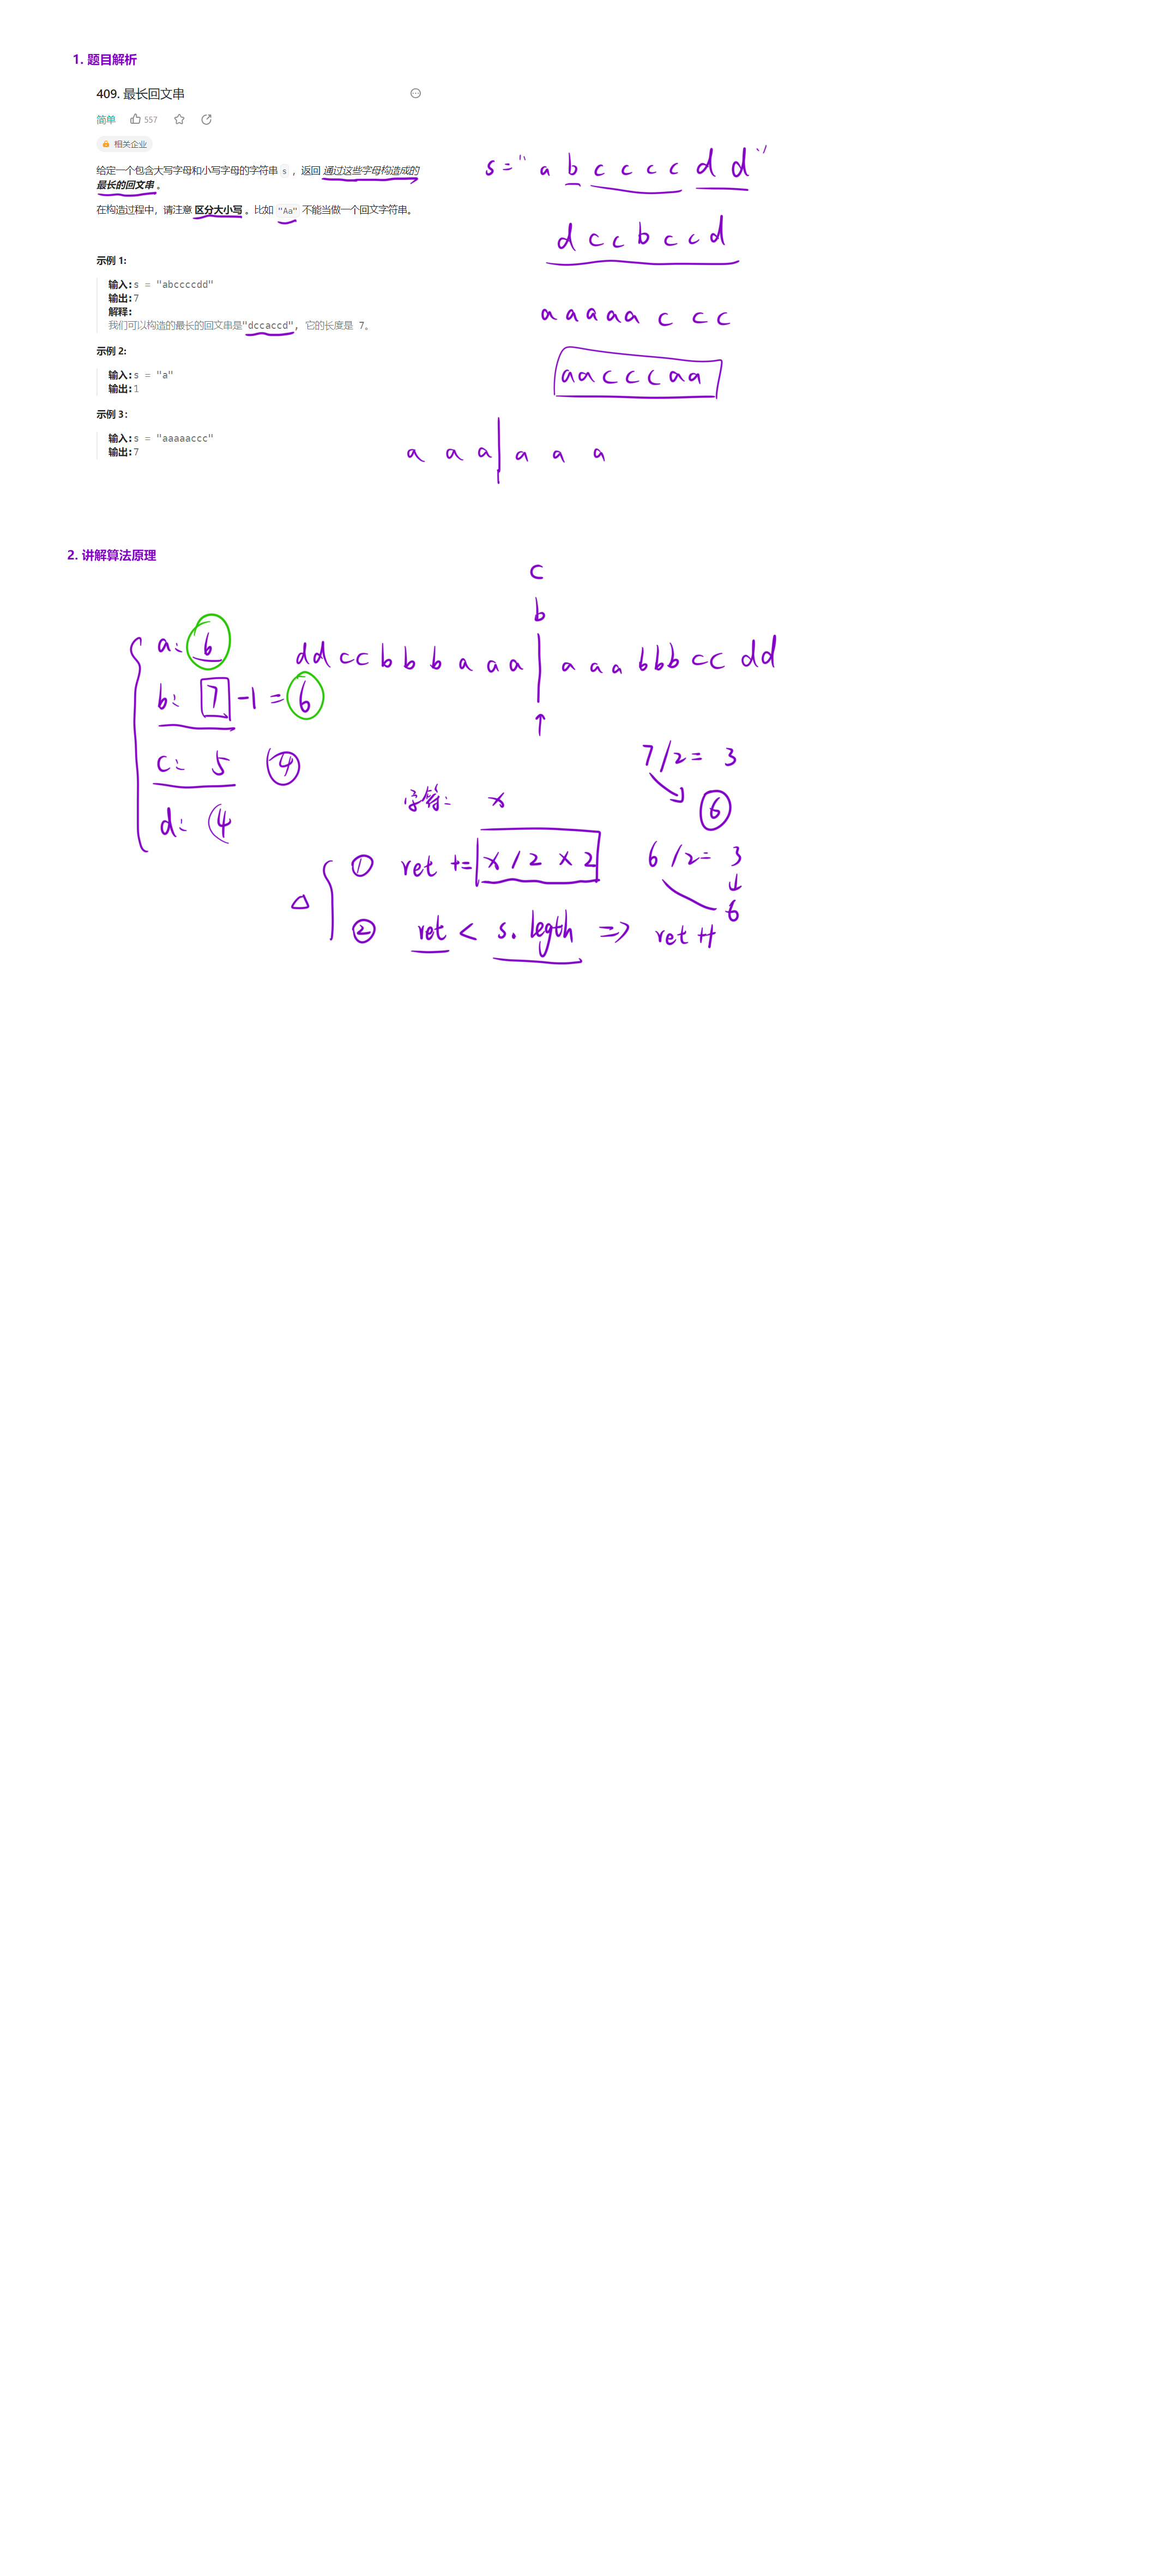 1. 题目解析
409. 最长回文串
简单 557
相关企业
给定一个包含大写字母和小写字母的字符串 s ，返回 通过这些字母构造成的
最长的回文串 。
在构造过程中，请注意 区分大小写 。比如 "Aa" 不能当做一个回文字符串。
示例 1:
输入:s = "abccccdd"
输出:7
解释:
我们可以构造的最长的回文串是"dccaccd", 它的长度是 7。
示例 2:
输入:s = "a"
输出:1
示例 3：
输入:s = "aaaaaccc"
输出:7
s = " a b c c c c d d "
d c c b c c d
a a a a a c c c
a a c c c a a
a a a | a a a
2. 讲解算法原理
c
b
a: 6
b: 7 -1 = 6
c: 5 4
d: 4
d d c c b b b a a a | a a a b b b c c d d
7 / 2 = 3
6
x
6 / 2 = 3
6
① ret += x / 2 × 2
② ret < s. legth => ret ++